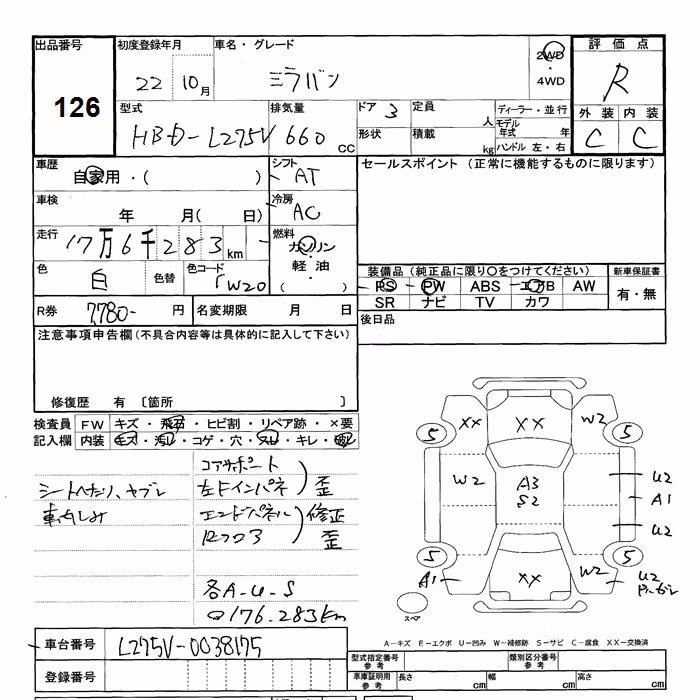 出品番号
126
初度登録年月
22 10月
車名・グレード
ミラバン
2WD
・
4WD
評価点
R
外装 内装
C C
型式
HBD-L275V
排気量
660 cc
ドア 3
形状
定員 人
積載 kg
ディーラー・並行
モデル年式 年
ハンドル 左・右
車歴
自家用・( )
シフト
AT
車検
年 月( 日)
冷房
AC
走行
17万6千283km
燃料
ガソリン
・
軽油
( )
色
白
色替
色コード
W20
R券 7,780- 円
名変期限 月 日
セールスポイント (正常に機能するものに限ります)
装備品(純正品に限り○をつけてください)
PS PW ABS エアB AW
SR ナビ TV カワ
新車保証書
有・無
後日品
注意事項申告欄(不具合内容等は具体的に記入して下さい)
修復歴 有 〔箇所 〕
検査員記入欄
FW キズ・飛石・ヒビ割・リペア跡・×要
内装 キズ・汚レ・コゲ・穴・スレ・キレ・
シートへたり、ヤブレ
コアサポート
左ドインパネ 歪
エンドパネル 修正
Rフロア 歪
各A-U-S
176.283km
XX XX W2
5 5
W2 A3 S2
U2
A1
U2
5 5
A1 XX W2 U2
スペア
A-キズ E-エクボ U-凹み W-補修跡 S-サビ C-腐食 XX-交換済
車台番号 L275V-0038175
登録番号
型式指定番号 参考
類別区分番号 参考
車庫証明用 参考
長さ cm 幅 cm 高さ cm